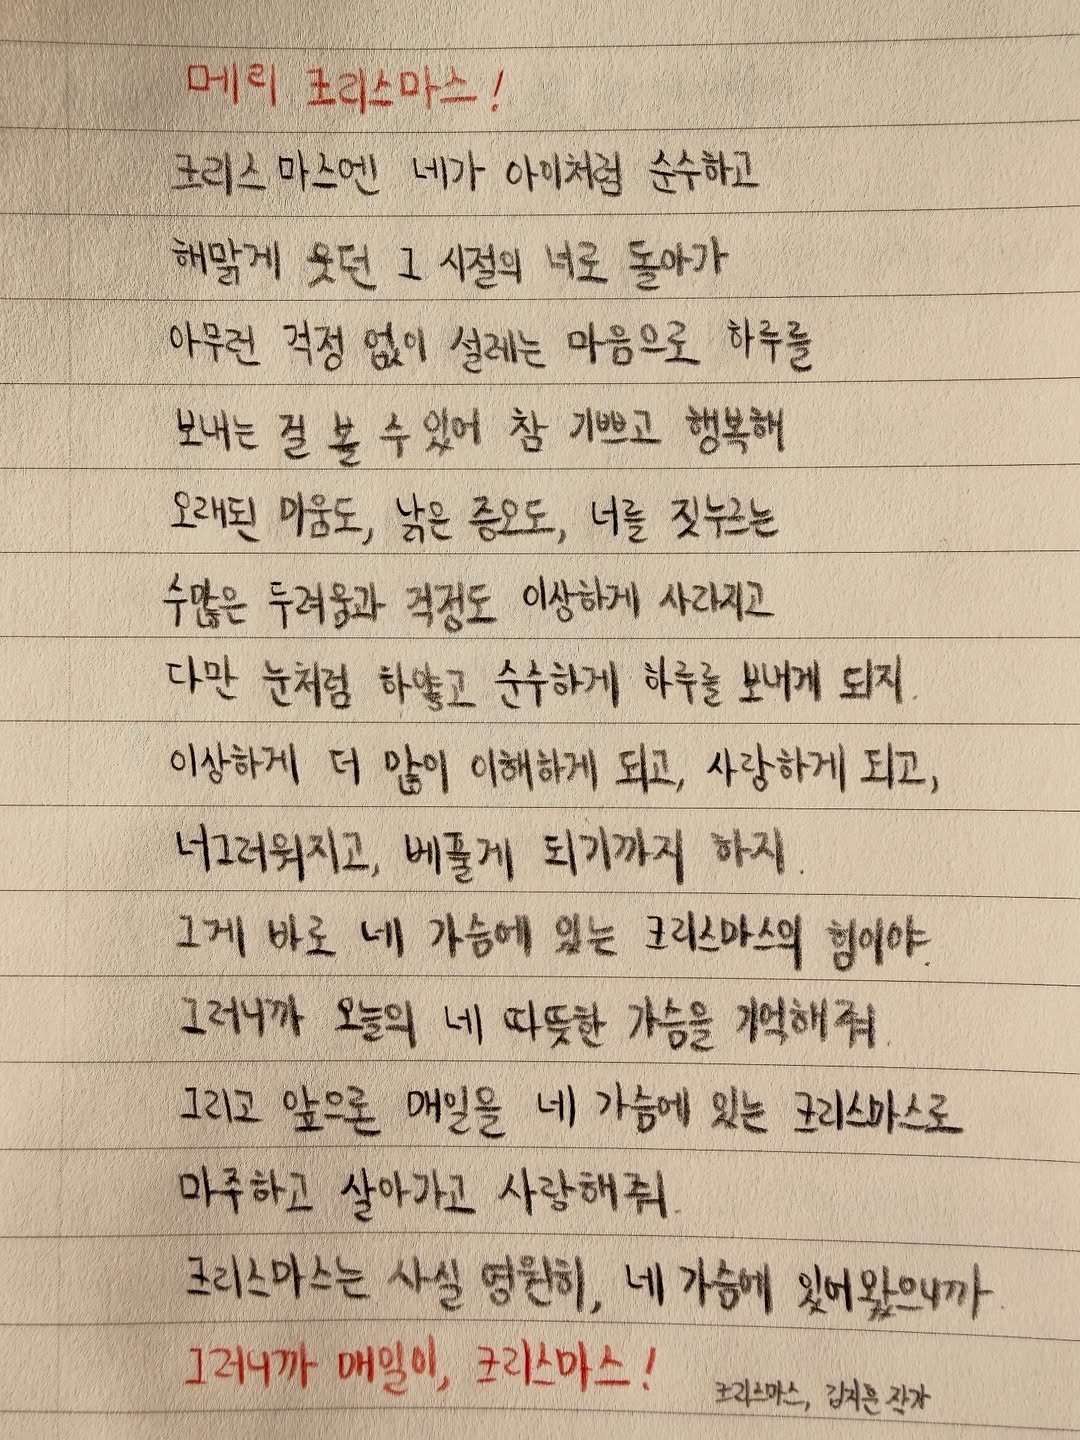 메리 크리스마스!
크리스마스엔 네가 아이처럼 순수하고
해맑게 웃던 그 시절의 너로 돌아가
아무런 걱정 없이 설레는 마음으로 하루를
보내는 걸 볼 수 있어 참 기쁘고 행복해
오래된 미움도, 낡은 증오도, 너를 짓누르는
수많은 두려움과 걱정도 이상하게 사라지고
다만 눈처럼 하얗고 순수하게 하루를 보내게 되지.
이상하게 더 많이 이해하게 되고, 사랑하게 되고,
너그러워지고, 베풀게 되기까지 하지.
그게 바로 네 가슴에 있는 크리스마스의 힘이야.
그러니까 오늘의 네 따뜻한 가슴을 기억해줘.
그리고 앞으론 매일을 네 가슴에 있는 크리스마스로
마주하고 살아가고 사랑해줘.
크리스마스는 사실 영원히, 네 가슴에 있어왔으니까.
그러니까 매일이, 크리스마스!
크리스마스, 김지훈 작가